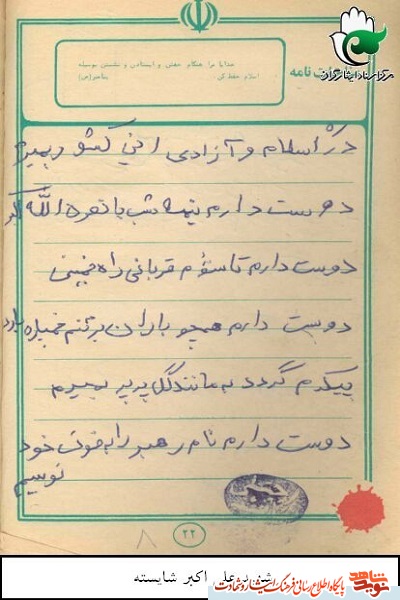 مرکز اسناد ایثارگران
نامه
خدایا مرا هنگام خفتن و ایستادن و نشستن بوسیله
اسلام حفظ کن پیامبر (ص)
در اسلام و آزادی این کشور بمیرم
دوست دارم نیمه شب با نعره الله اکبر
دوست دارم تا شوم قربانی راه خمینی
دوست دارم همچو باران بر تنم خمپاره بارد
پیکرم گردد به مانند گل پرپر بمیرم
دوست دارم نام رهبر را به خون خود
نویسم
۲۲
۸
شهید علی اکبر شایسته
نوید شاهد
پایگاه اطلاع رسانی فرهنگ ایثار و شهادت